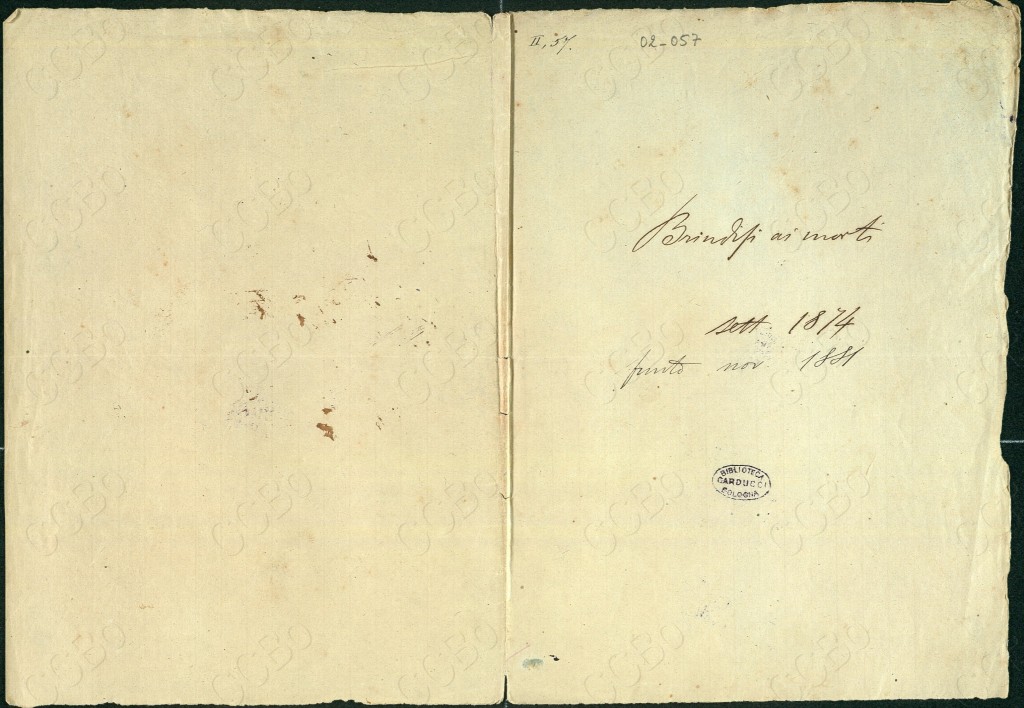 II, 57.
02-057
Brindisi ai morti
sett 1874
finito nov 1881
BIBLIOTECA
CARDUCCI
BOLOGNA